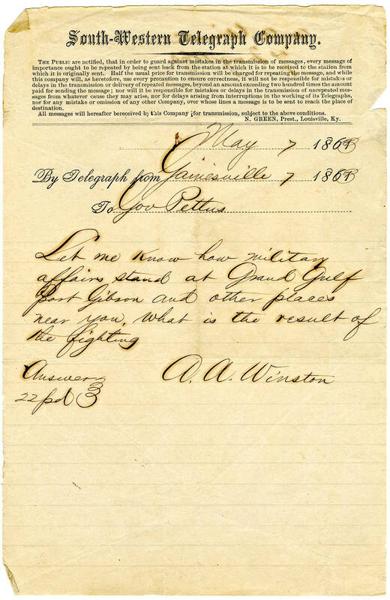 South-Western Telegraph Company.
THE PUBLIC are notified, that in order to guard against mistakes in the transmission of messages, every message of
importance ought to be repeated by being sent back from the station at which it is to be received to the station from
which it is originally sent. Half the usual price for transmission will be charged for repeating the message, and while
this company will, as heretofore, use every precaution to ensure correctness, it will not be responsible for mistakes or
delays in the transmission or delivery of repeated messages, beyond an amount exceeding two hundred times the amount
paid for sending the message; nor will it be responsible for mistakes or delays in the transmission of unrepeated mes-
sages from whatever cause they may arise, nor for delays arising from interruptions in the working of its Telegraphs,
nor for any mistake or omission of any other Company, over whose lines a message is to be sent to reach the place of
destination.
All messages will hereafter be received by this Company for transmission, subject to the above conditions.
N. GREEN, Prest., Louisville, Ky.
May 7 1863
By Telegraph from Gainesville 7 1863
To Gov Pettus
Let me know how military
affairs stand at Grand Gulf
Port Gibson and other places
near you. What is the result of
the fighting
Answer A. A. Winston
22 pd 3